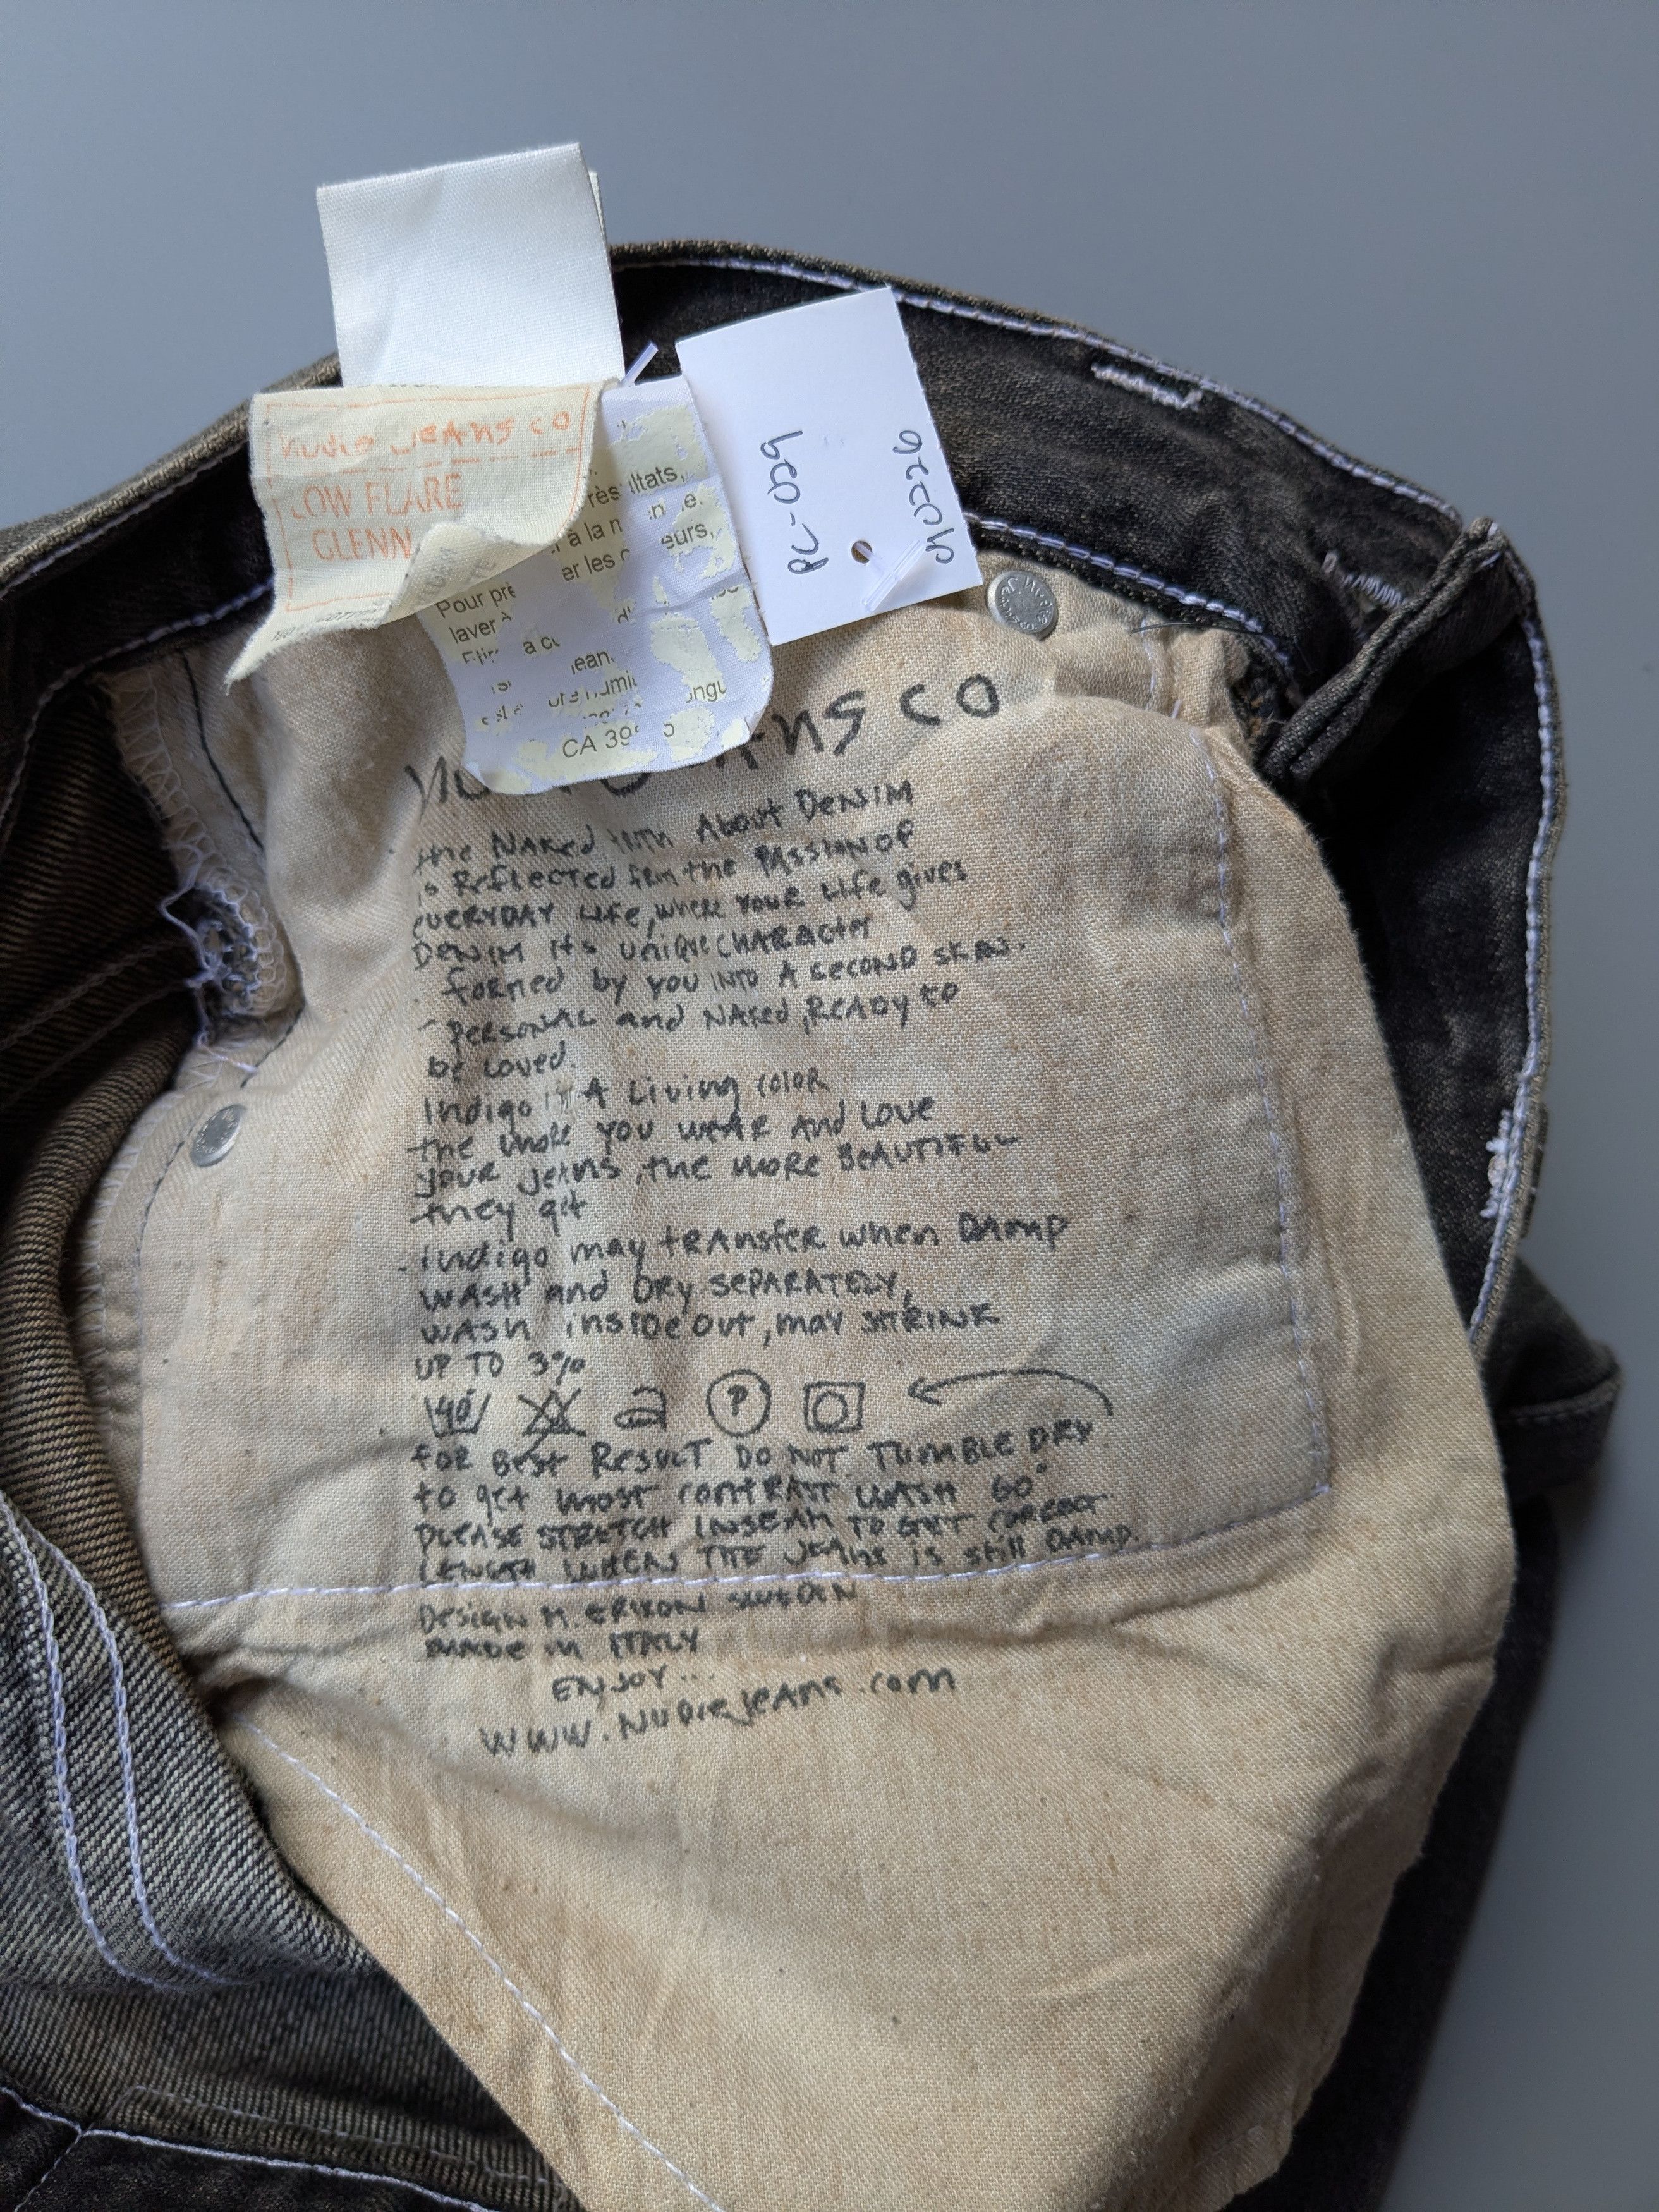 nudie jeans co
LOW FLARE
GLENN
ltats,
à la
er les
eurs,
Pour
laver
CA
PL-029
040226
ns co
the NAKed truth About DENIM
is Reflected from the PASSION OF
EVERYDAY Life, where YOUR Life gives
DENIM its UNIQUE CHARACTER
formed by you INTO A SECOND SKIN.
PERSONAL and NAKED, READY to
be Loved.
Indigo is A Living COLOR
the more YOU WEAR And LOVE
your jeAns, the more BEAUTIFUL
they get
indigo may tRAnsfeR when DAmp
WASH and DRY SEPARATELY,
WASH inside out, may SHRINK
UP TO 3%
40°
P
foR Best Result DO NOT TUMBLE DRY
to get most CONTRAST WASH 60°
PLEASE STRETCH INSEAM TO GET CORRECT
LENGTH WHEN THE JEANs is still DAMP.
DESIGN M. ERIXON SWEDEN
MADE IN ITALY
ENJOY...
WWW.NUDIEJEANS.com